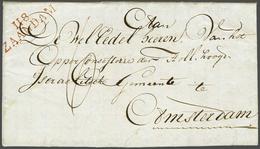 118
ZAANDAM
Aan
De WelEdel heeren Van het
Opperconsistorie der Holl. Hoog
Israelitische Gemeente te
Amsterdam